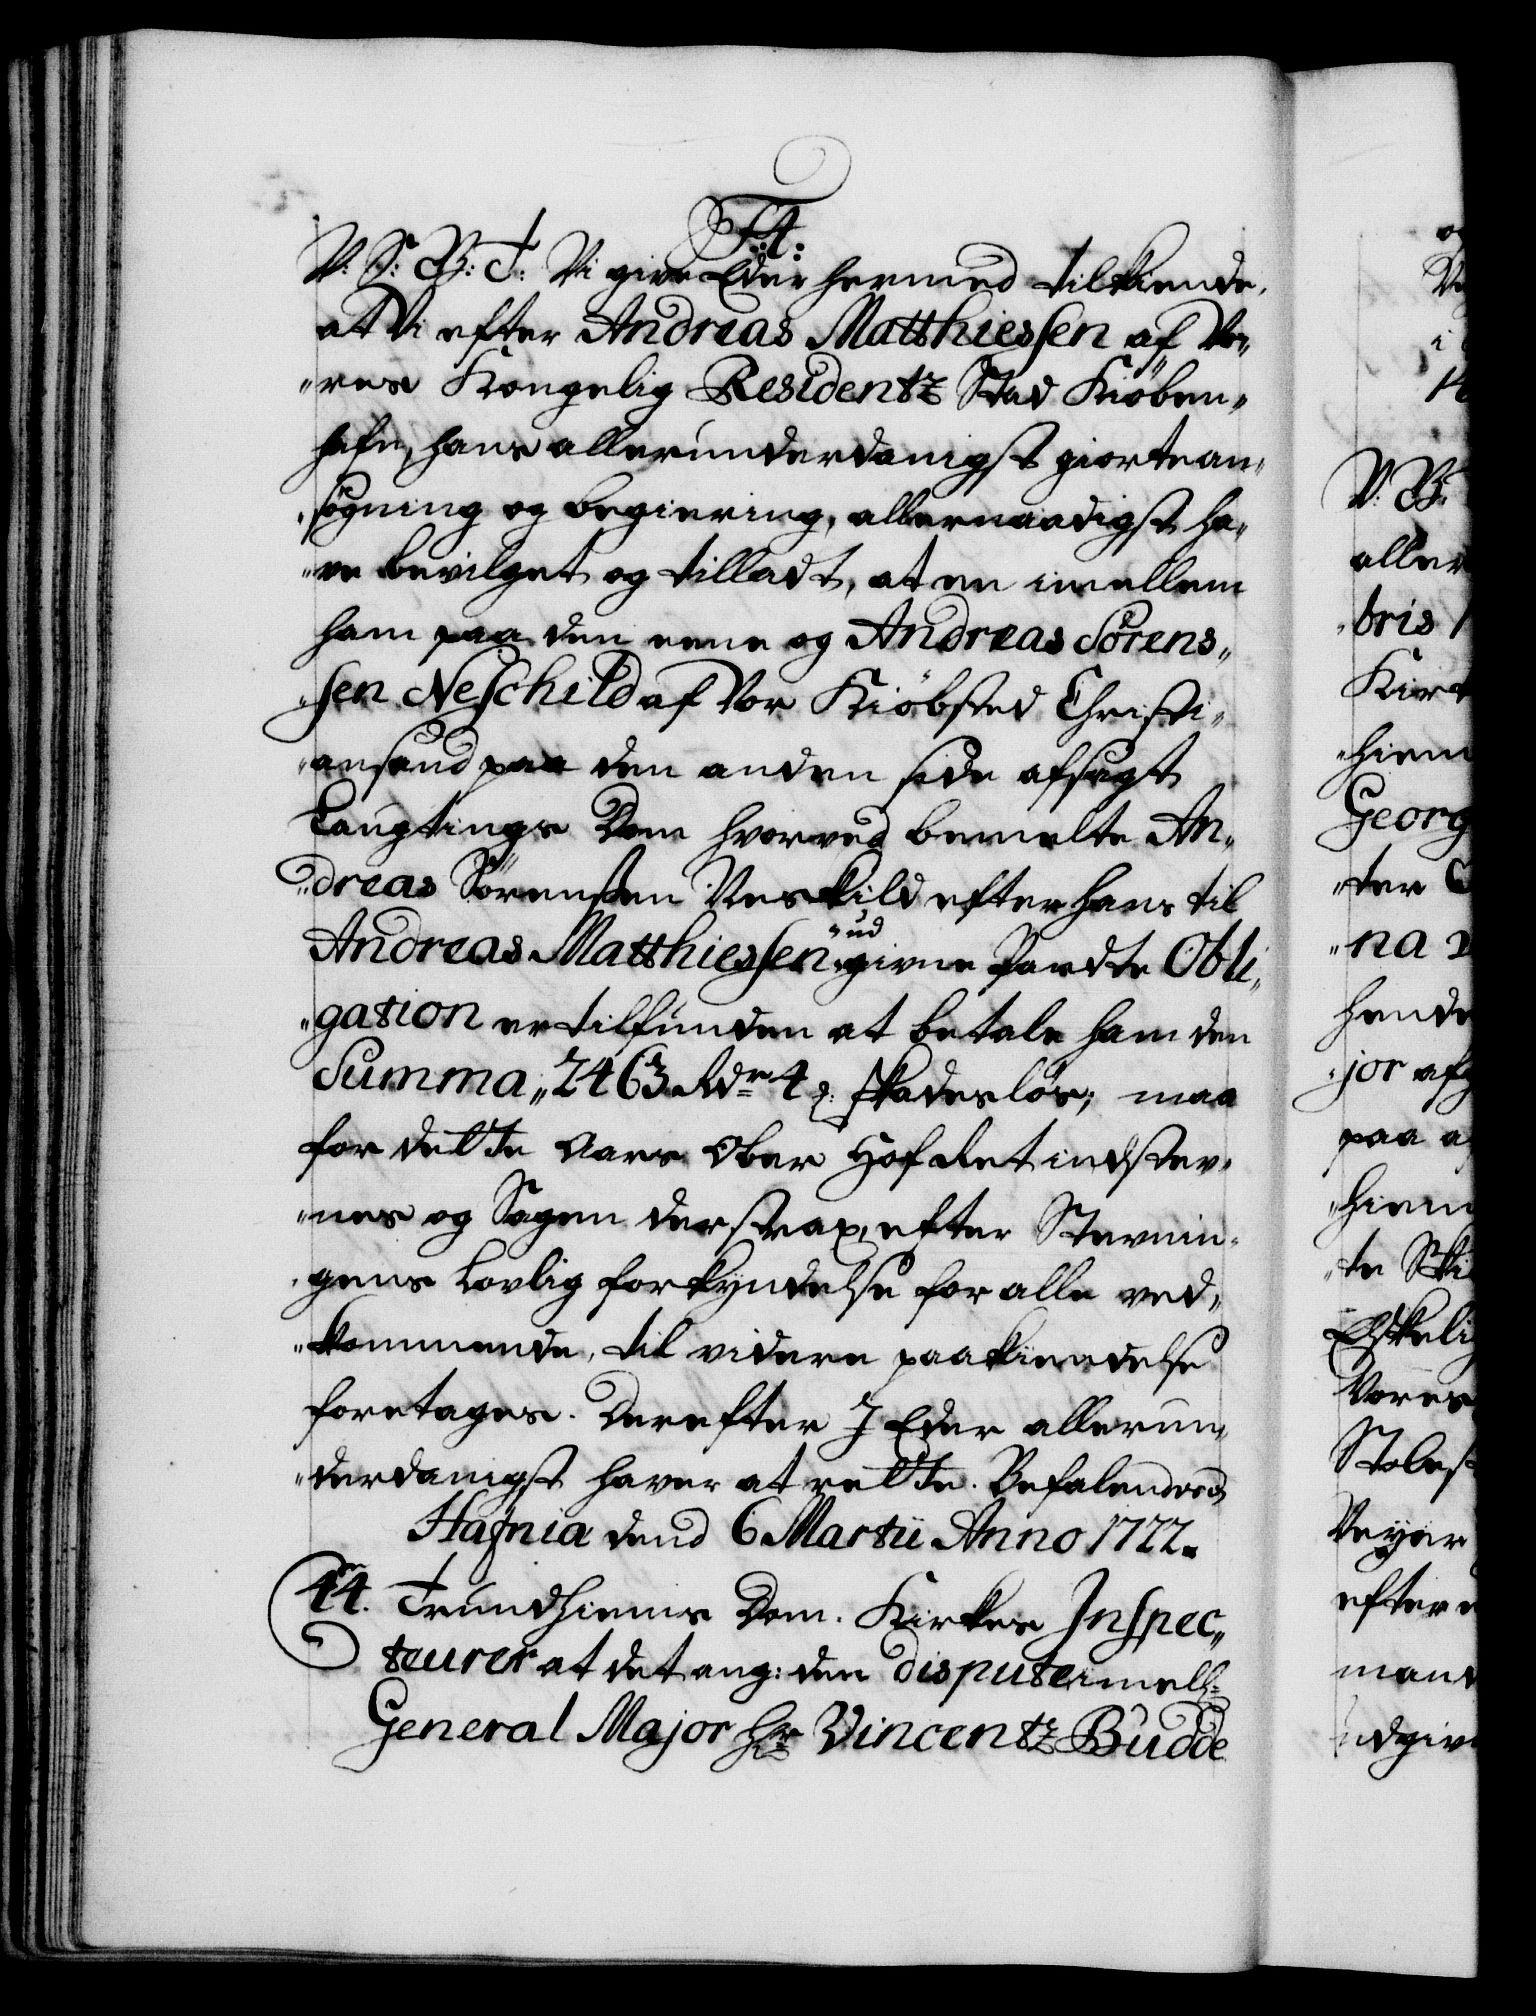 F: 4:
V: S: B: T: Vi give Eder hermed tilkiende,
at Vi efter Andreas Matthiessen af Vo„
„res Kongelig Residentz Stad Kiöben„
hafn, hans allerunderdanigst giorte an„
„søgning og begiering, allernaadigst ha„
„ve bevilget og tilladt, at en imellem
ham paa den eene og Andreas Sörens„
„sen Neschild af Vor Kiöbsted Christi„
„ansand paa den anden side afsagt
Laugtings Dom hvorved bemelte An„
„dreas Sörensen Neskild efter hans til
Andreas Matthiessen „ud
givne Pandte Obli„
„gation er tilfunden at betale ham den
Summa „2463 Rdr 4 ß: skadesløs; maa
for dette Aars Ober Hof Ret indstev„
„nes og Sagen der strax, efter Stevnin„
„gens Lovlig forkyndelse for alle ved„
„kommende, til videre paakiendelse
foretages. Derefter I Eder allerun„
„derdanigst haver at rette. Befalendes
Hafnia dend 6 Martii Anno 1722.
44. Trundhiems Dom. Kirkes Inspec„
teurer at det ang: den dispute imell:
General Major Hr Vincentz Budde